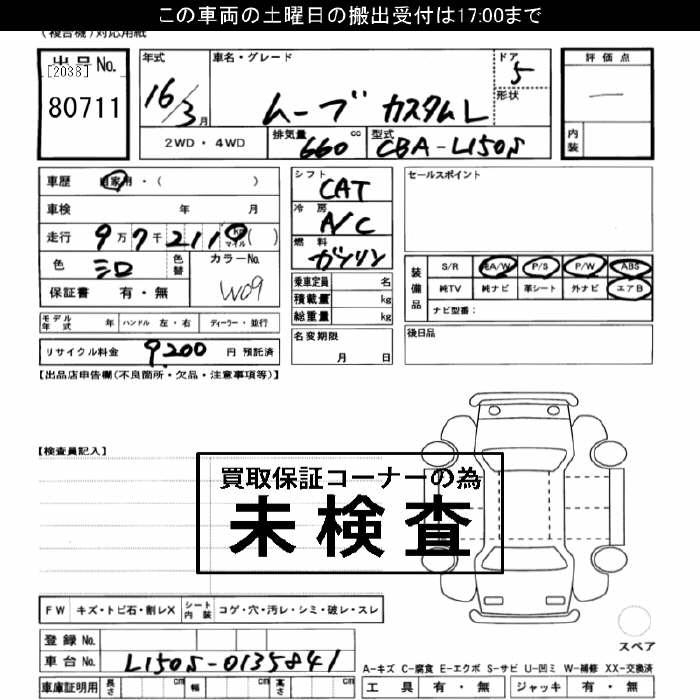 この車両の土曜日の搬出受付は17:00まで
(複合機)対応用紙
出品No.
[2038]
80711
年式
16/3月
車名・グレード
ムーブ カスタムL
ドア
5
形状
評価点
内装
2WD・4WD
排気量
660 cc
型式
CBA-L150S
車歴 自家用・( )
車検 年 月
走行 9万7千2110 マイル( )
色 シロ
色替
カラーNo.
W09
保証書 有・無
シフト
CAT
冷房
A/C
燃料
ガソリン
乗車定員 名
積載量 kg
総重量 kg
セールスポイント
装備品
S/R 純A/W P/S P/W ABS
純TV 純ナビ 革シート 外ナビ エアB
ナビ型番:
モデル年式 年 ハンドル 左・右 ディーラー・並行
名変期限
月 日
後日品
リサイクル料金 9,200 円 預託済
【出品店申告欄(不良箇所・欠品・注意事項等)】
【検査員記入】
買取保証コーナーの為
未検査
FW キズ・トビ石・割レX シート内装 コゲ・穴・汚レ・シミ・破レ・スレ
スペア
登録No.
車台No. L150S-0135841
A-キズ C-腐食 E-エクボ S-サビ U-凹ミ W-補修 XX-交換済
車庫証明用 長さ cm 幅 cm 高さ cm
工具 有・無 ジャッキ 有・無